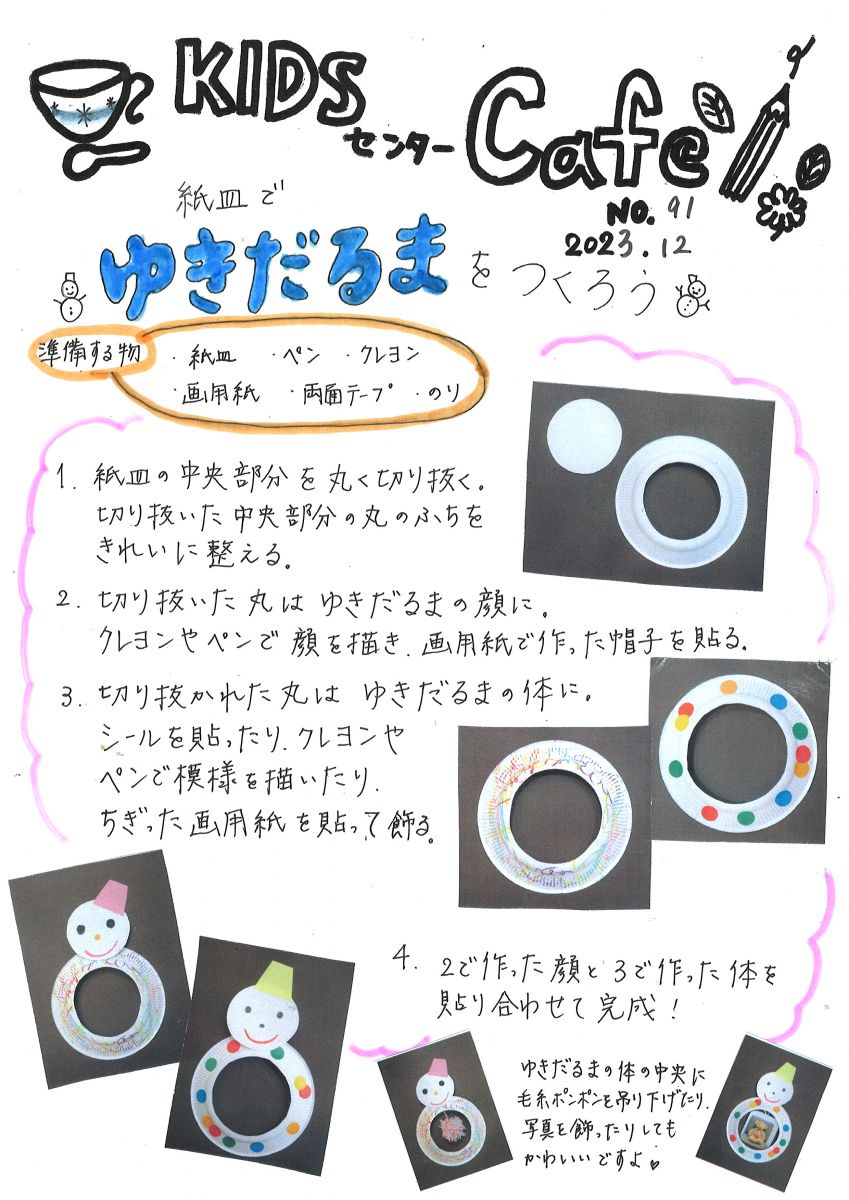 KIDS
センター Cafe
NO. 91
2023.12
紙皿で
ゆきだるまをつくろう
準備する物
・紙皿 ・ペン ・クレヨン
・画用紙 ・両面テープ ・のり
1. 紙皿の中央部分を丸く切り抜く。
切り抜いた中央部分の丸のふちを
きれいに整える。
2. 切り抜いた丸はゆきだるまの顔に。
クレヨンやペンで顔を描き、画用紙で作った帽子を貼る。
3. 切り抜かれた丸はゆきだるまの体に。
シールを貼ったり、クレヨンや
ペンで模様を描いたり、
ちぎった画用紙を貼って飾る。
4. 2で作った顔と3で作った体を
貼り合わせて完成!
ゆきだるまの体の中央に
毛糸ポンポンを吊り下げたり、
写真を飾ったりしても
かわいいですよ♥